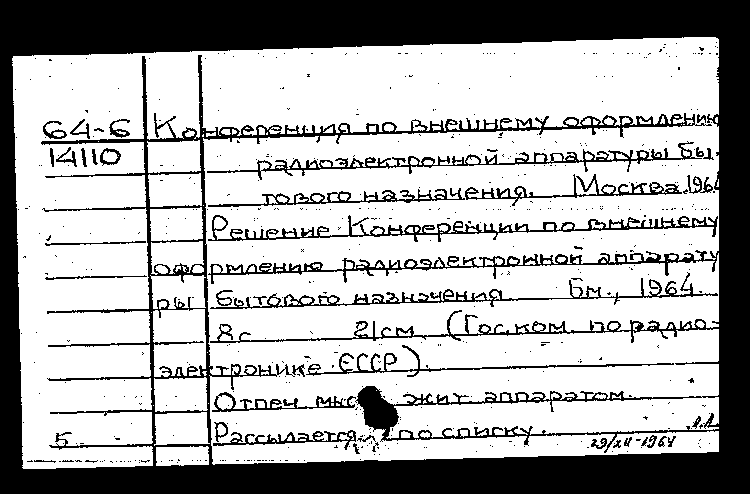 64-6 Конференция по внешнему оформлению
14110 радиоэлектронной аппаратуры бы-
тового назначения. Москва, 1964
Решение Конференции по внешнему
оформлению радиоэлектронной аппарату
ры бытового назначения Бм., 1964.
8с 21см (Госком. по радио-
электронике СССР).
Отпеч жит аппаратом.
5 Рассылается по списку. 29/XII-1964